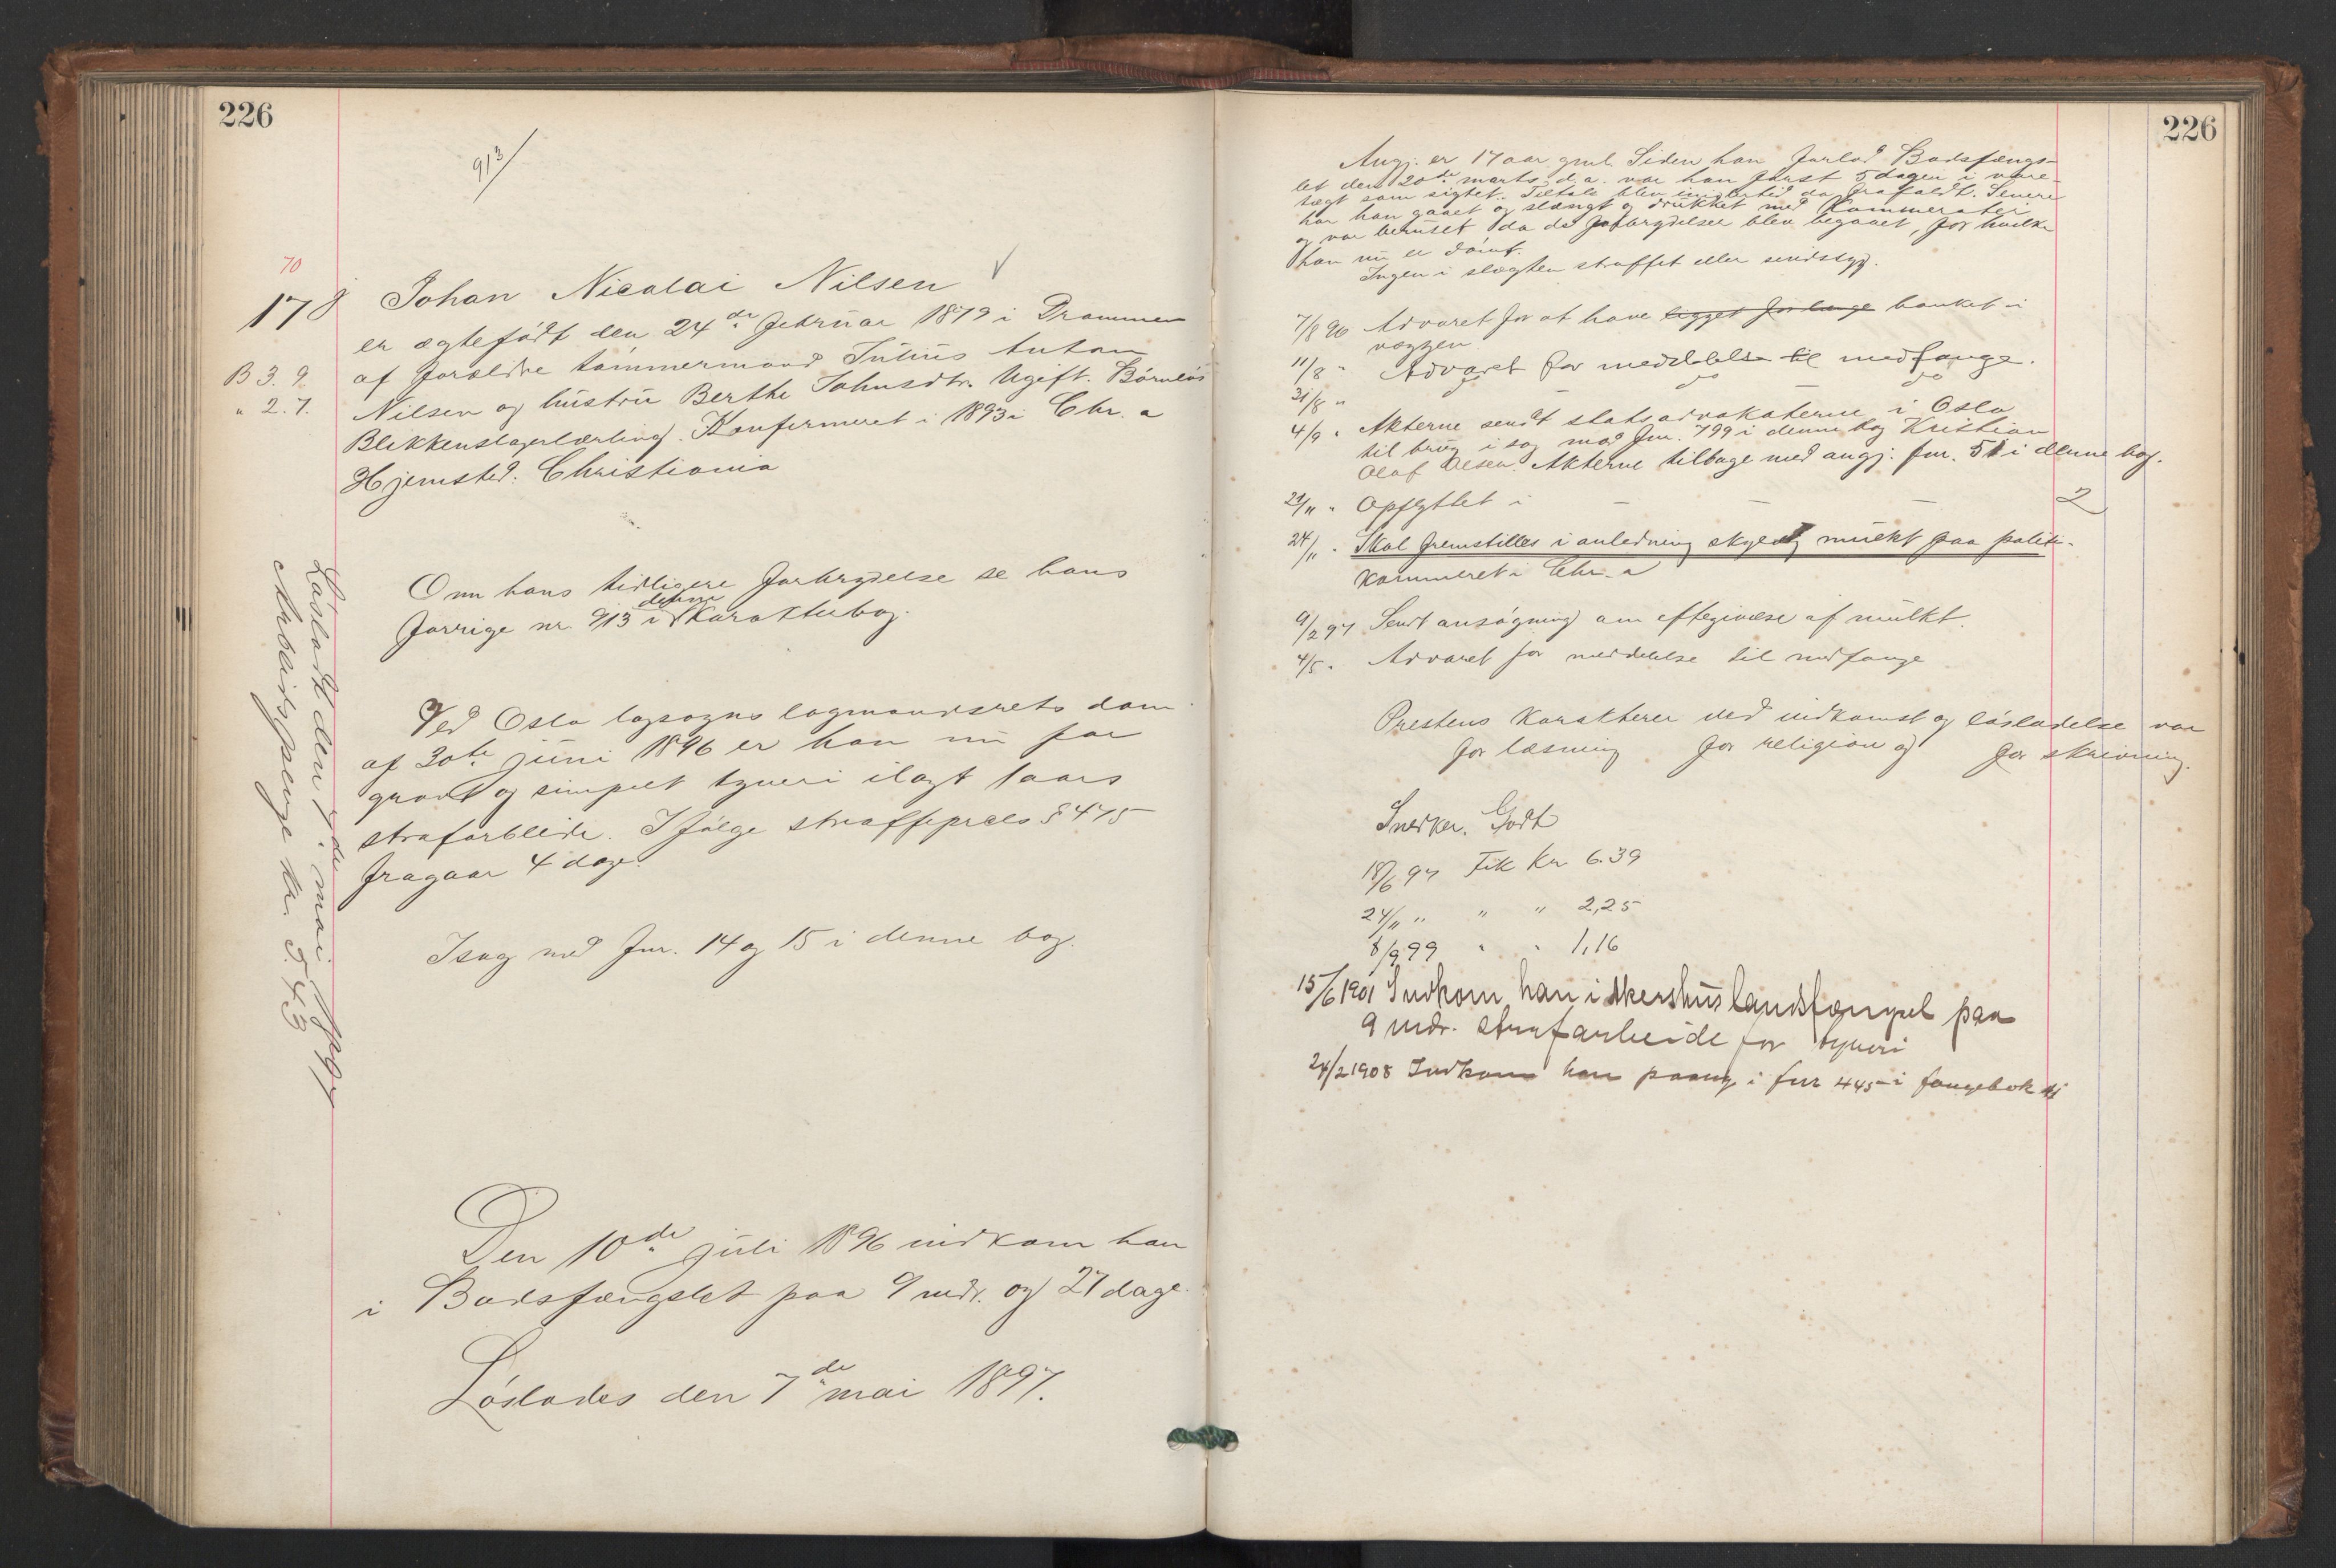 226
913/
70
178
Johan Nicolai Nilsen √
er ægtefødt den 24de februar 1879 i Drammen
B 3. 9.
af forældre tømmermand Julius Anton
" 2. 7.
Nilsen og hustru Berthe Johnsdtr. Ugift. Børnløs
Blikkenslagerlærling. Konfirmeret i 1893 i Chr.a
Hjemsted: Christiania
Om hans tidligere forbrydelse se hans
forrige nr. 913 i denne karakterbog.
Ved Oslo lagsogns lagmandsrets dom
af 30te juni 1896 er han nu for
grovt og simpelt tyveri ilagt 1 aars
strafarbeide. Ifølge straffeprcls § 475
fragaar 4 dage.
I sag med fnr. 14 og 15 i denne bog.
Den 10de juli 1896 indkom han
i Bodsfængslet paa 9 mdr. og 27 dage.
Løslodes den 7de mai 1897.
Løsladt den 7de mai 1897
Arbeidspenge kr. 5.43
226
Angj. er 17 aar gml. Siden han forlod Bodsfængs-
let den 20de marts d.a. var han først 5 dage i vare-
tægt som sigtet. Tiltale blev imidlertid da frafaldt. Senere
har han gaaet og slængt og drukket med kammerater
og var beruset da de forbrydelser blev begaaet, for hvilke
han nu er dømt.
Ingen i slægten straffet eller sindssyg.
7/8 96 Advaret for at have ligget for længe banket i
væggen.
11/8 " Advaret for meddelelse til medfange.
31/8 " do do do
4/9 " Akterne sendt statsadvokaterne i Oslo
til brug i sag mod fnr. 799 i denne bog Kristian
Olaf Olsen. Akterne tilbage med angj. fnr. 51 i denne bog.
29/11 " Opflyttet i — — — 2
24/11 " Skal fremstilles i anledning skyldig mulkt paa politi-
kammeret i Chr.a
9/2 97 Sendt ansøgning om eftegivelse af mulkt.
4/5 " Advaret for meddelelse til medfange
Prestens karakterer ved indkomst og løsladelse var
for læsning for religion og for skrivning.
Snedker. Godt
18/6 97 Fik kr 6.39
24/11 " " " 2,25
8/9 99 " " 1,16
15/6 1901 Indkom han i Akershus landsfængsel paa
9 mdr. strafarbeide for tyveri
24/2 1908 Indkom han paany i fnr 445 i fangebok